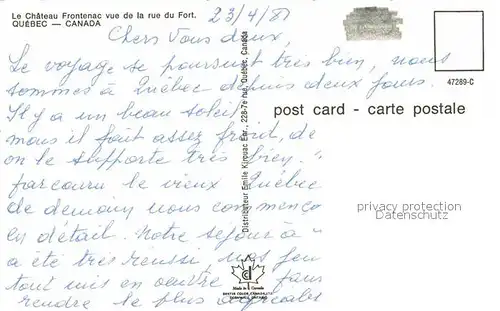 Le Château Frontenac vue de la rue du Fort.
QUÉBEC — CANADA
23/4/81
Chers Vous deux,
Le voyage se poursuit très bien, nous
sommes à Québec depuis deux jours.
Il y a un beau soleil
mais il fait assez froid,
on le supporte très bien.
parcouru le vieux Québec
de demain nous
en détail. Notre séjour à
a été très réussi,
tout mis en oeuvre
rendre le plus agréable
47289-C
post card - carte postale
Distributeur Emile Kirouac Enr., 228-7e rue, Québec, Canada
privacy protection
Datenschutz
Made in Canada